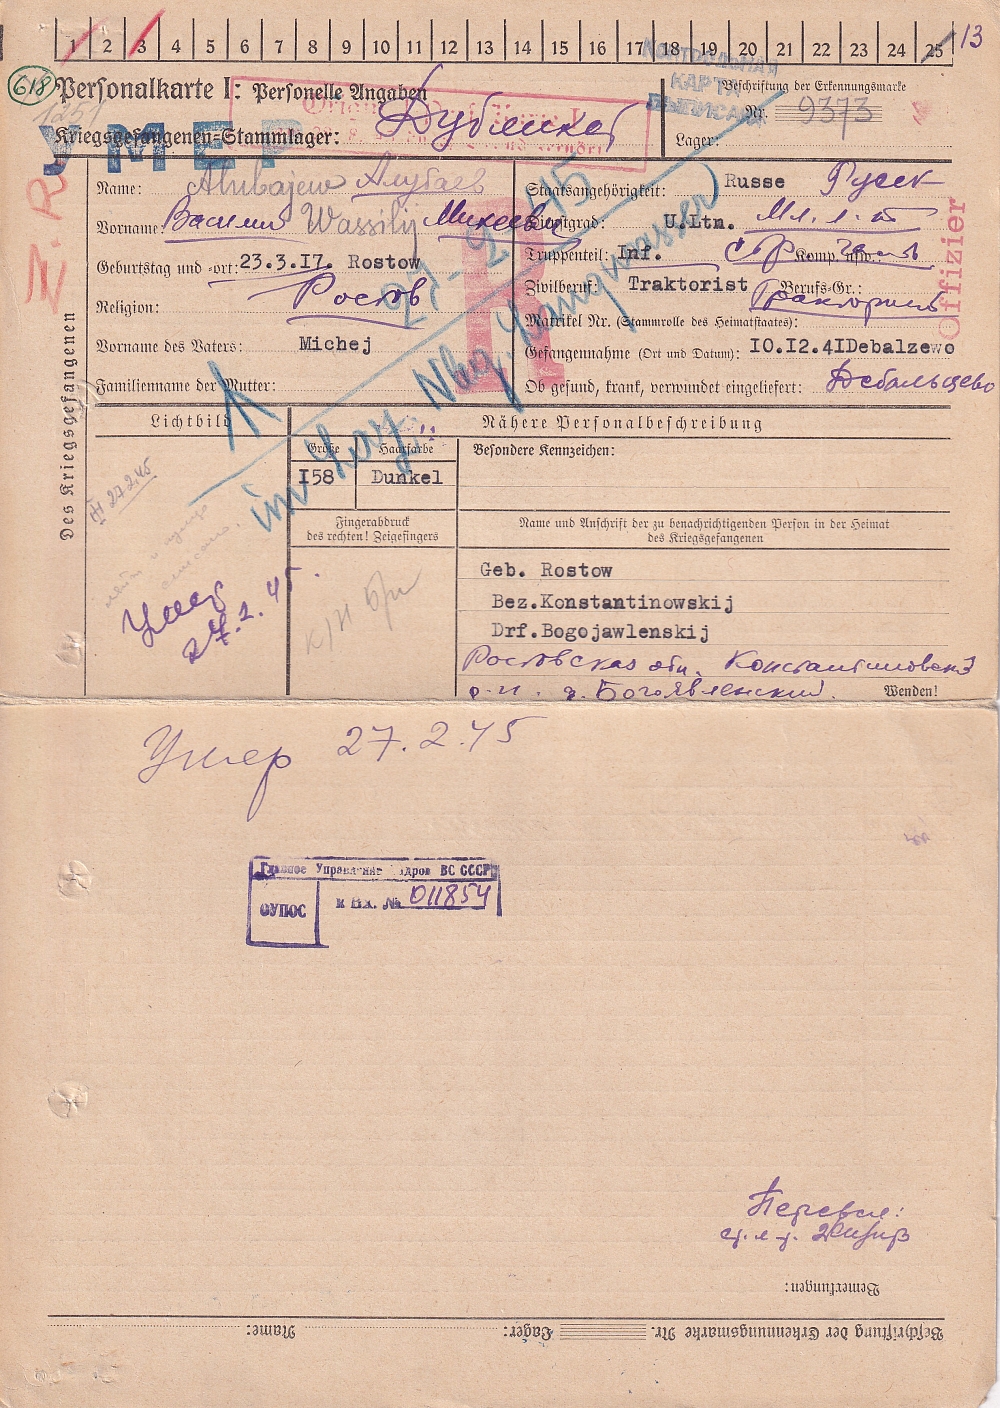 1 2 3 4 5 6 7 8 9 10 11 12 13 14 15 16 17 18 19 20 21 22 23 24 25 13
618
Personalkarte I: Personelle Angaben
КОНТРОЛЬНАЯ
КАРТА
ВЫПИСАНА
Beschriftung der Erkennungsmarke
Nr. 9373
Kriegsgefangenen-Stammlager:
Lager:
УМЕР
Des Kriegsgefangenen
Name: Алубаев
Vorname: Василий Wassilij Михеевич
Geburtstag und -ort: 23.3.I7. Rostow
Ростов
Religion:
Vorname des Vaters: Michej
Familienname der Mutter:
Staatsangehörigkeit: Russe Русск
Dienstgrad: U.Ltn. Мл. л-т
Truppenteil: Inf. Komp. usw.: стр. часть
Zivilberuf: Traktorist Berufs-Gr.:
Тракторист
Matrikel Nr. (Stammrolle des Heimatstaates):
Gefangennahme (Ort und Datum): IO.I2.4IDebalzewo
Ob gesund, krank, verwundet eingeliefert: Дебальцево
Offizier
R
27-2-45
im Laz. Nbg. Langwasser
Lichtbild
Nähere Personalbeschreibung
Größe
Haarfarbe
Besondere Kennzeichen:
I58
Dunkel
Fingerabdruck
des rechten! Zeigefingers
Name und Anschrift der zu benachrichtigenden Person in der Heimat
des Kriegsgefangenen
27.2.45
Умер
27.2.45.
Geb. Rostow
Bez.Konstantinowskij
Drf.Bogojawlenskij
Ростовская обл. Константиновский
р-н. д. Богоявленский.
Wenden!
Умер 27.2.45
Главное Управление Кадров ВС СССР
ОУПОС
к вх. № 011854
Перевел:
Bemerkungen:
Beschriftung der Erkennungsmarke Nr. Lager: Name: